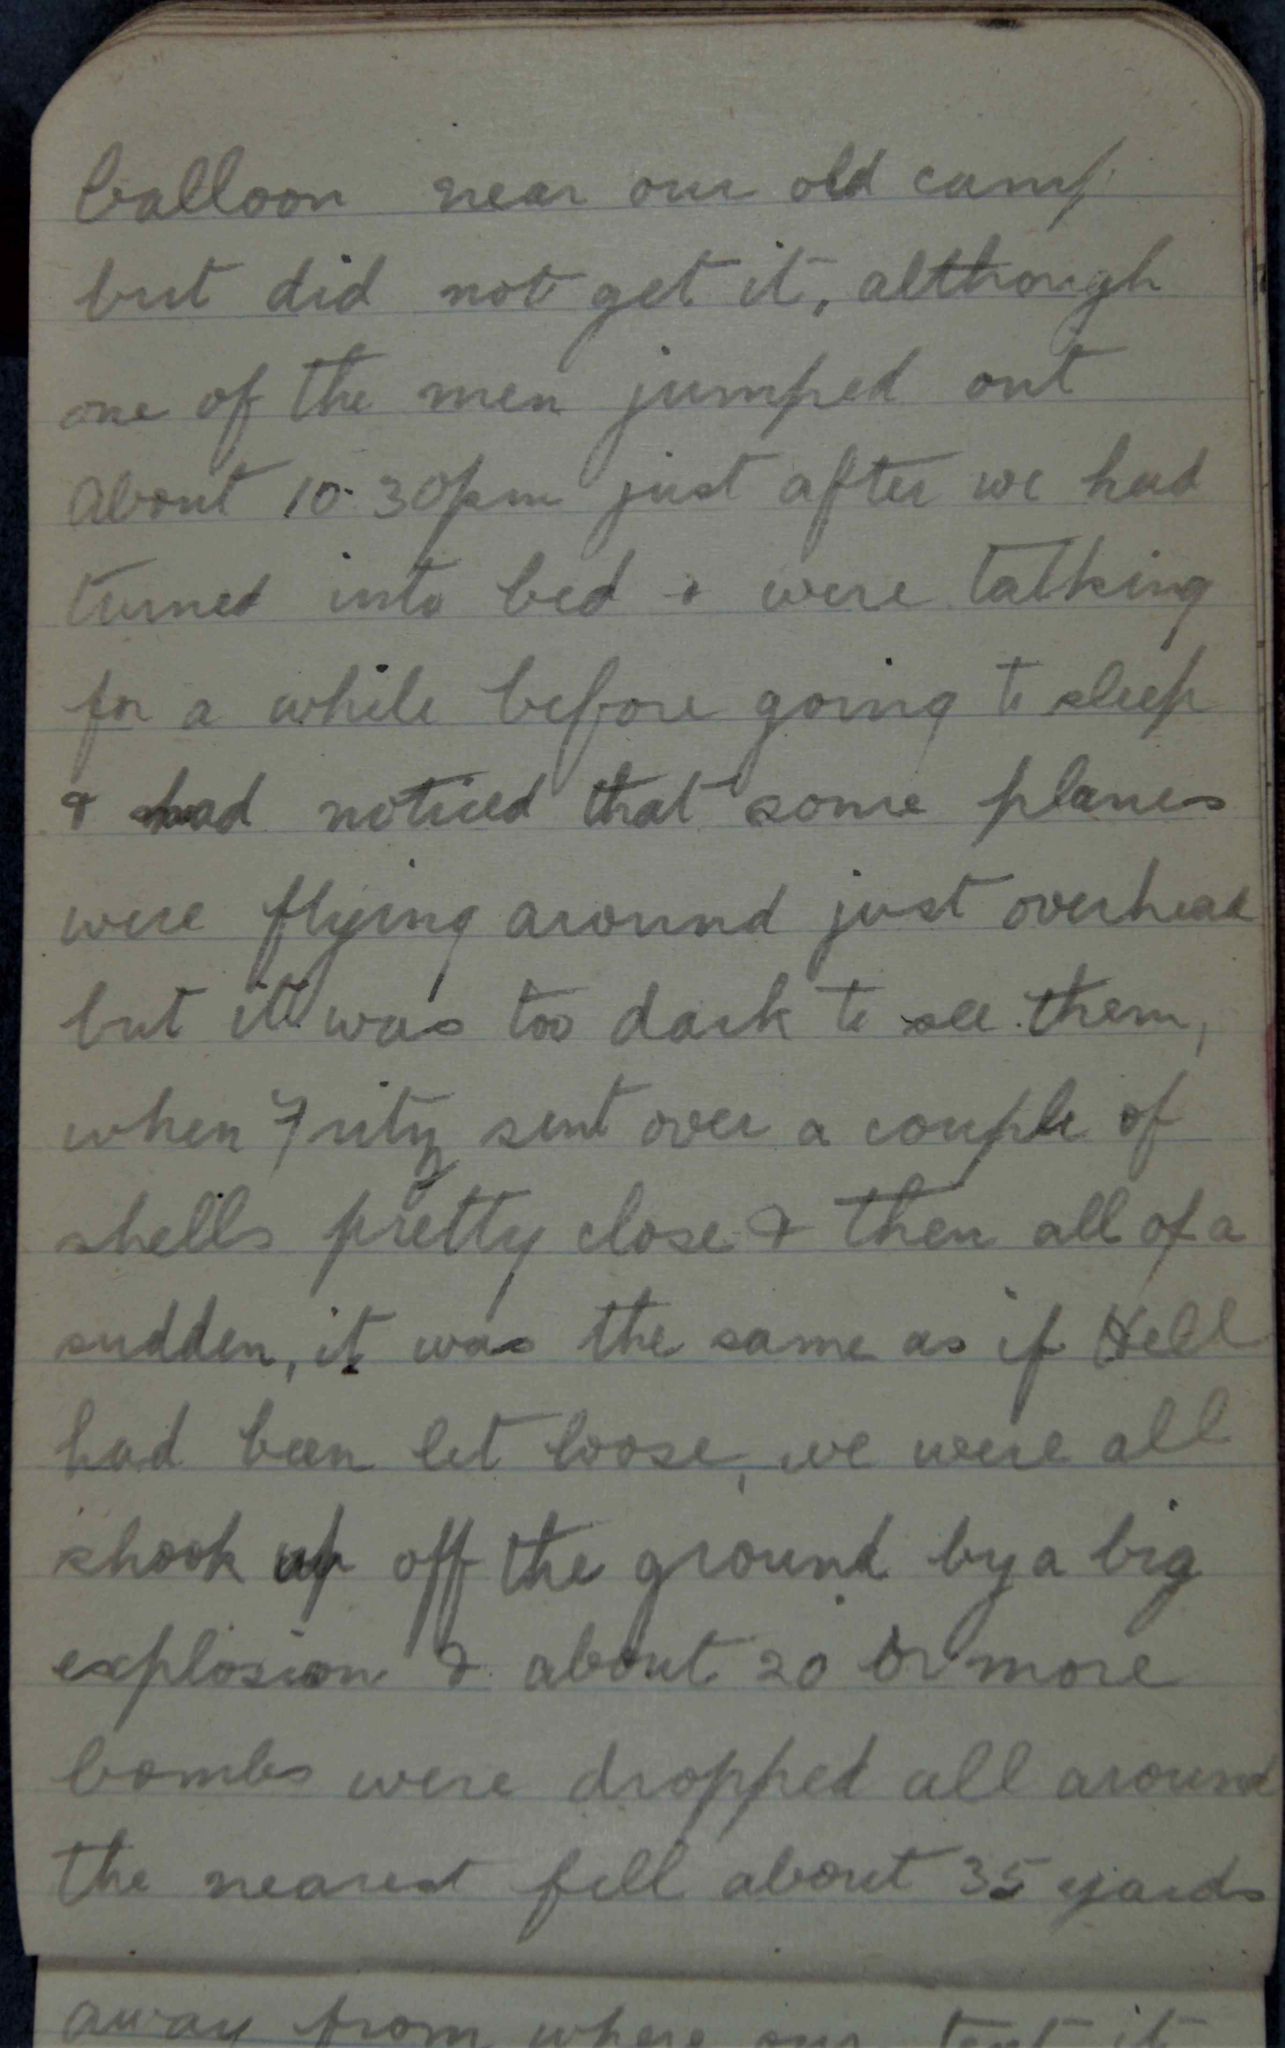 balloon near our old camp
but did not get it, although
one of the men jumped out
About 10.30pm just after we had
turned into bed & were talking
for a while before going to sleep
& had noticed that some planes
were flying around just overhead
but it was too dark to see them,
when Fritz sent over a couple of
shells pretty close & then all of a
sudden, it was the same as if Hell
had been let loose, we were all
shook up off the ground by a big
explosion & about 20 or more
bombs were dropped all around
the nearest fell about 35 yards
away from where our tent it